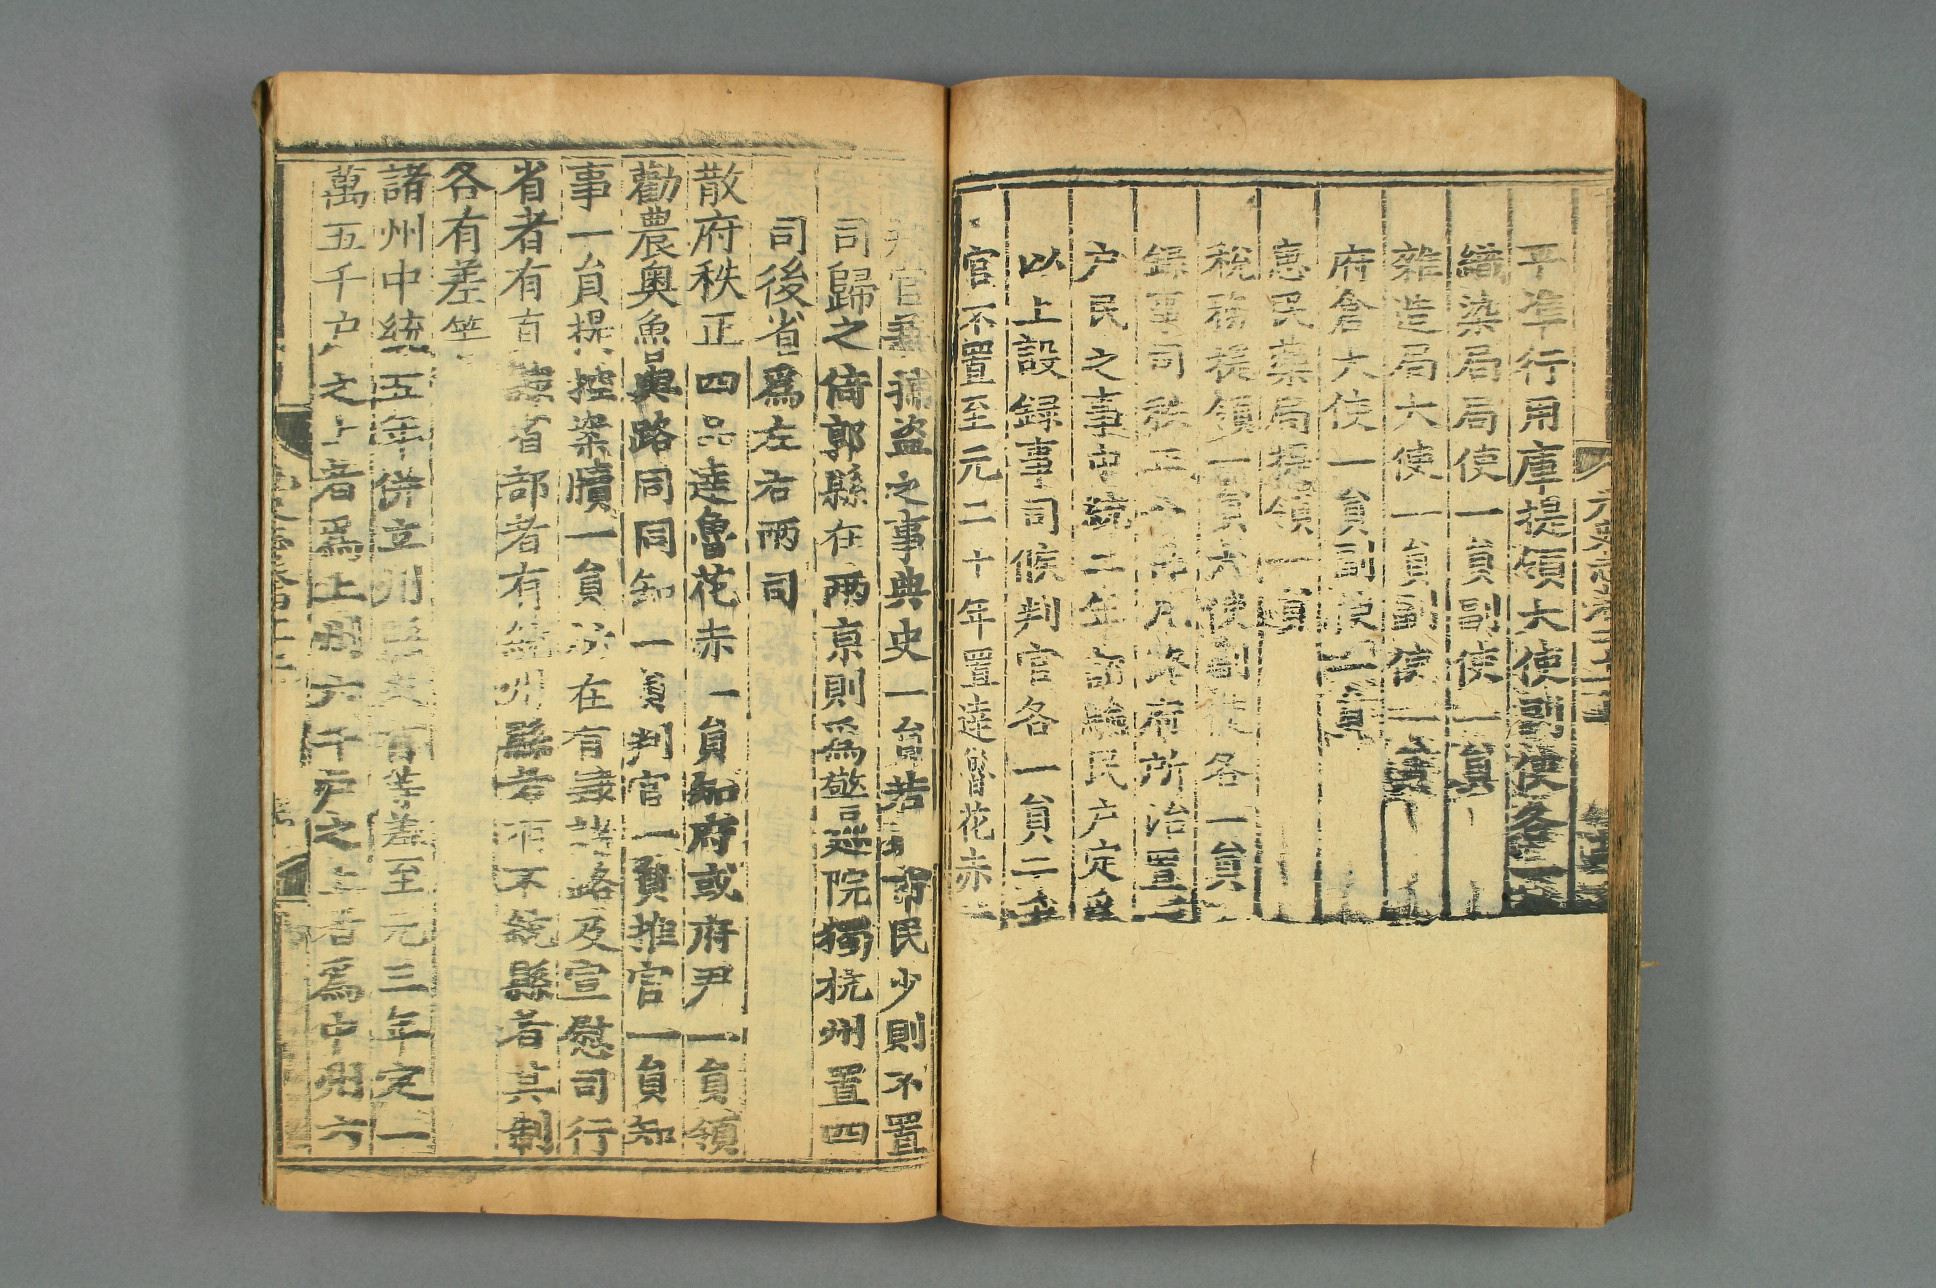 平準行用庫提領大使副使各一
織染局局使一員副使一員
雜造局大使一員副使一員
府倉大使一員副使一員
惠民藥局提領一員
稅務提領一員大使副使各一員
錄事司秩正八品凡路府所治置一
户民之事中統二年驗民户定爲
以上設錄事司候判官各一員二千
官不置至元二十年置達魯花赤一
官兼捕盜之事典史一員若城市民少則不置
司歸之倚郭縣在兩京則爲警巡院獨杭州置四
司後省爲左右兩司
散府秩正四品達魯花赤一員知府或府尹一員領
勸農奧魯與路同同知一員判官一員推官一員知
事一員提控案牘一員所在有隸諸路及宣慰司行
省者有直隸省部者有統州縣者有不統縣者其制
各有差等
諸州中統五年併立州縣未有等差至元三年定一
萬五千户之上者爲上州六千户之上者爲中州六